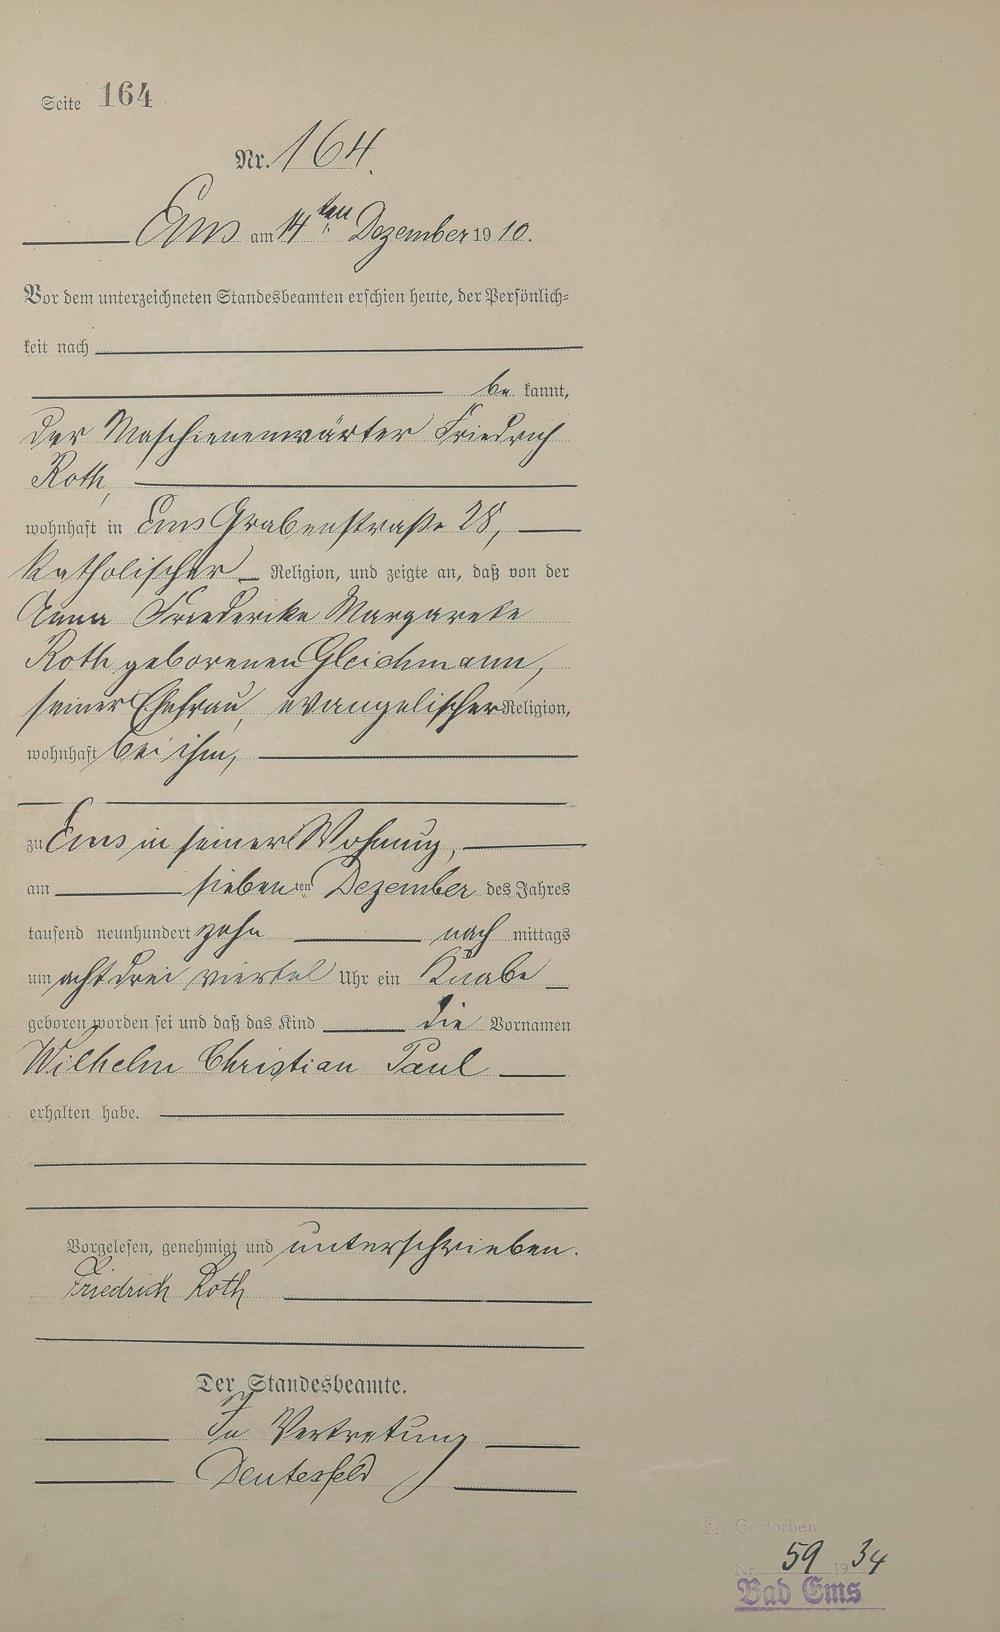 Seite 164
Nr. 164.
Ems am 14ten Dezember 1910.
Vor dem unterzeichneten Standesbeamten erschien heute, der Persönlich=
keit nach
be kannt,
der Maschienenwärter Friedrich
Roth,
wohnhaft in Ems Grabenstraße 28,
katholischer Religion, und zeigte an, daß von der
Anna Friederike Margarete
Roth geborenen Gleichmann,
seiner Ehefrau, evangelischer Religion,
wohnhaft bei ihm,
zu Ems in seiner Wohnung,
am siebenten Dezember des Jahres
tausend neunhundert zehn nach mittags
um acht drei viertel Uhr ein Knabe
geboren worden sei und daß das Kind die Vornamen
Wilhelm Christian Paul
erhalten habe.
Vorgelesen, genehmigt und unterschrieben.
Friedrich Roth
Der Standesbeamte.
In Vertretung
Deutesfeld
Gestorben
Nr. 59 1934
Bad Ems